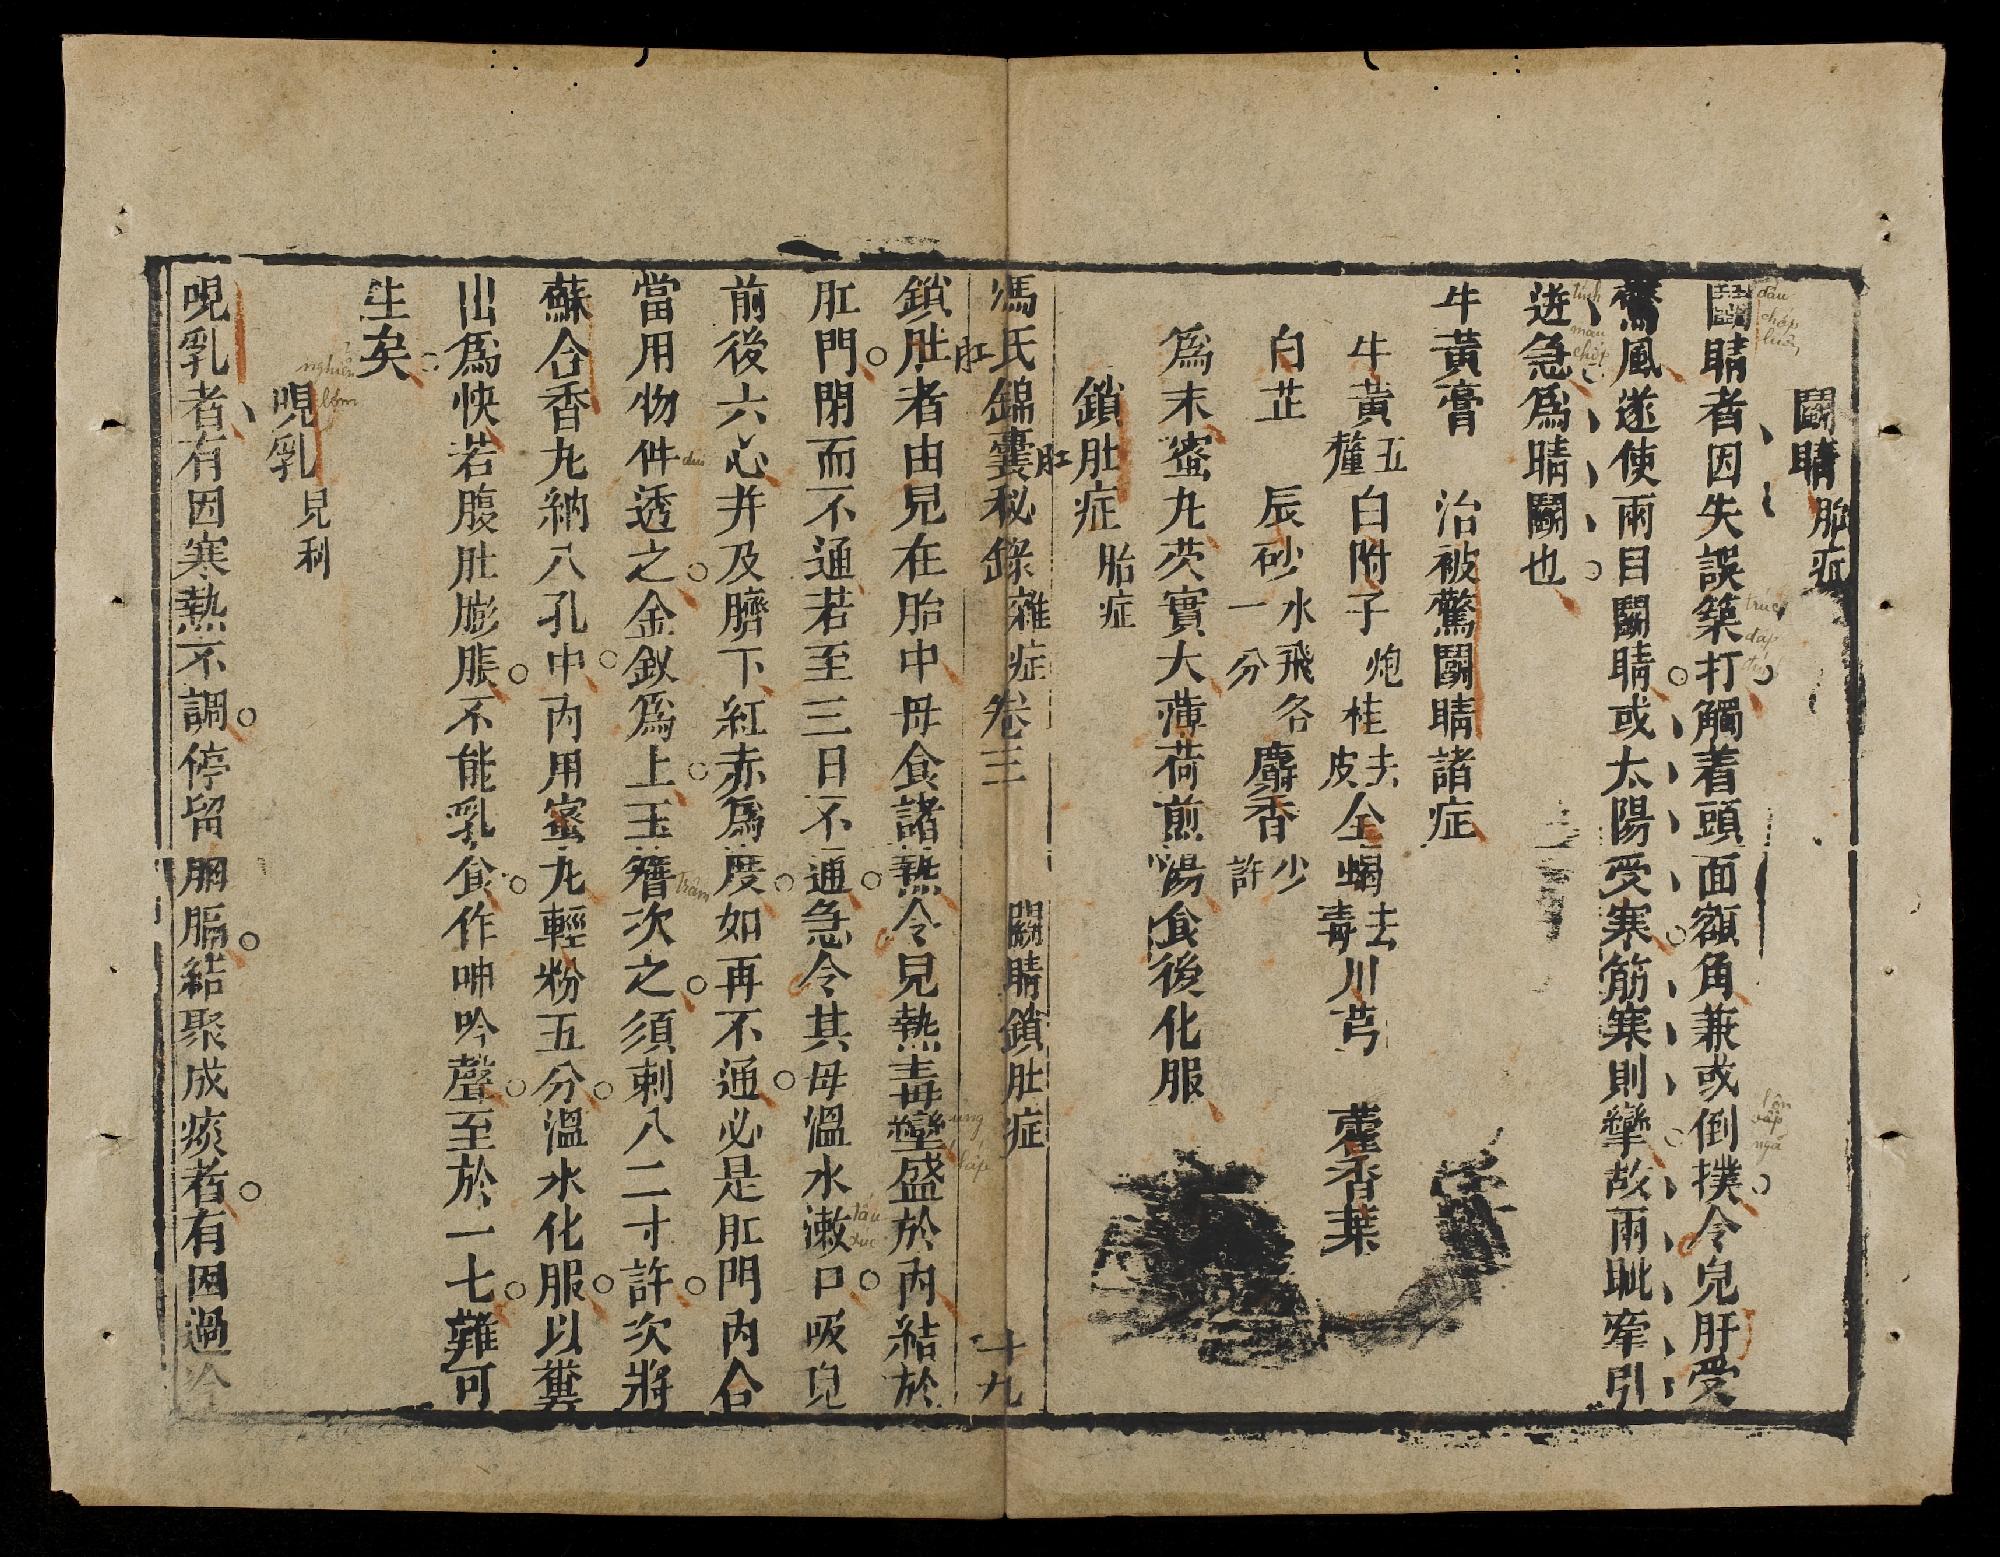 鬭睛胎症
鬭睛者因失誤築打觸着頭面額角兼或倒撲令兒肝受
驚風遂使兩目鬭睛或太陽受寒筋寒則攣故兩眦牽引
逆急爲睛鬭也
牛黃膏 治被驚鬭睛諸症
牛黃五釐白附子炮桂去皮全蝎去毒川芎 藿香葉
白芷 辰砂水飛各一分麝香少許
爲末蜜丸芡實大薄荷煎湯食後化服
鎖肚症胎症
肛
馮氏錦囊秘錄雜症卷三 鬭睛鎖肚症 十九
肛
鎖肚者由兒在胎中母食諸熱令兒熱毒壅盛於內結於
肛門閉而不通若至三日不通急令其母溫水漱口吸兒
前後六心并及臍下紅赤爲度如再不通必是肛門內合
當用物件透之金釵爲上玉簪次之須刺入二寸許次將
蘇合香丸納入孔中內用蜜丸輕粉五分溫水化服以糞
出爲快若腹肚膨脹不能乳食作呻吟聲至於一七難可
生矣
哯乳見利
哯乳者有因寒熱不調停留胸膈結聚成痰者有因過冷
đấu
chóp
tính
mau
chóp
trúc
đáp
ngã
ung
tấu
trâm
nghiễn